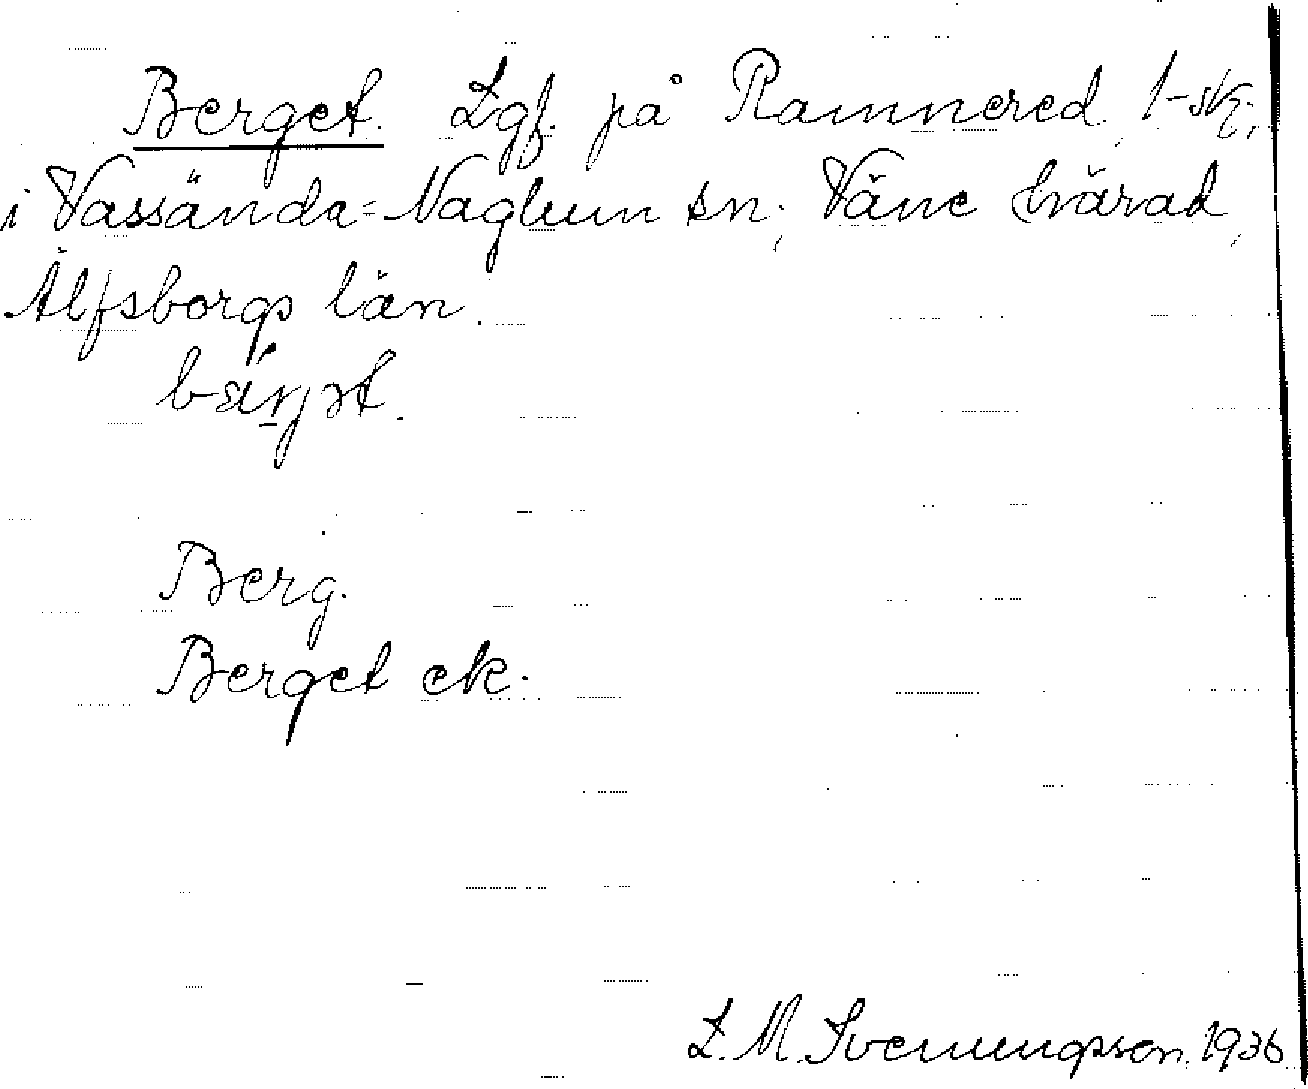 Berget. Lgf. på Ramnered, 1-sk.,
i Vassända-Naglum sn., Väne härad,
Älfsborgs län.
Berg.
Berget ek.
L. M. Svenungsson. 1936